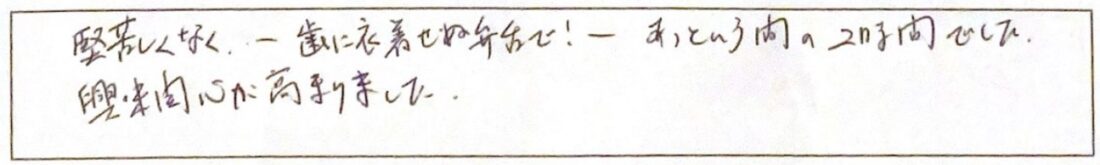 堅苦しくなく、－歯に衣着せぬ弁舌で！－ あっという間の2時間でした.
興味関心が高まりました.